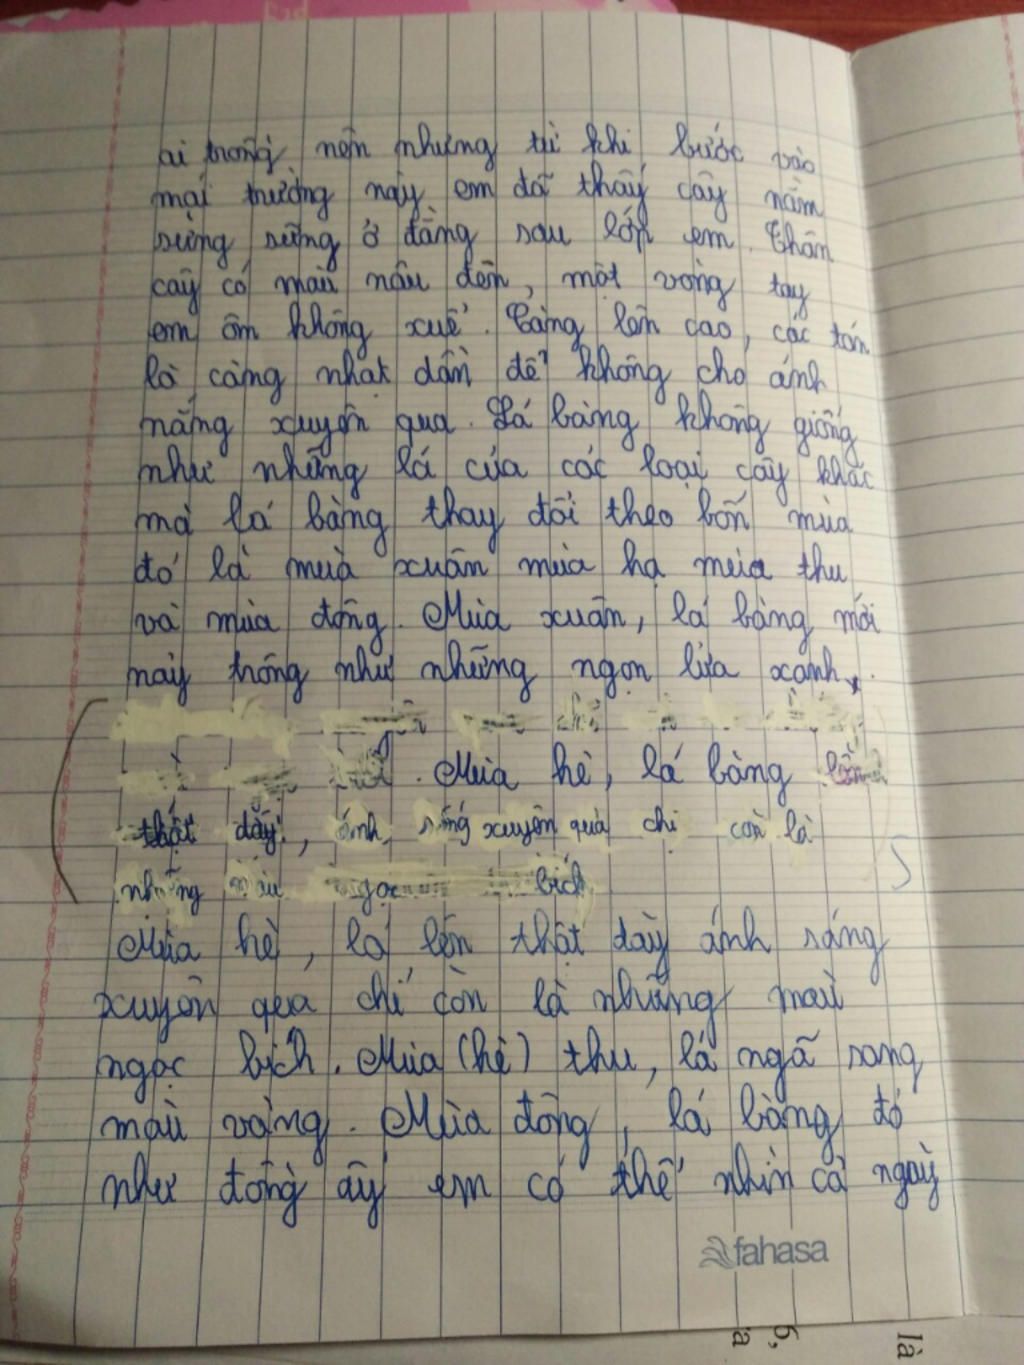 ai trồng nên nhưng từ khi bước vào
mái trường này em đã thấy cây nằm
sừng sững ở đằng sau lớp em. Thân
cây có màu nâu đen, một vòng tay
em ôm không xuể. Càng lên cao, các tán
lá càng nhạt dần để không cho ánh
nắng xuyên qua. Lá bàng không giống
như những lá của các loại cây khác
mà lá bàng thay đổi theo bốn mùa
đó là mùa xuân mùa hạ mùa thu
và mùa đông. Mùa xuân, lá bàng mới
nảy trông như những ngọn lửa xanh.
Mùa hè, lá bàng lên
thật dày, ánh sáng xuyên qua chỉ còn là
những màu ngọc bích
Mùa hè, lá lên thật dày ánh sáng
xuyên qua chỉ còn là những màu
ngọc bích. Mùa (hè) thu, lá ngã sang
màu vàng. Mùa đông, lá bàng đỏ
như đồng ấy em có thể nhìn cả ngày
fahasa
6,
a
là